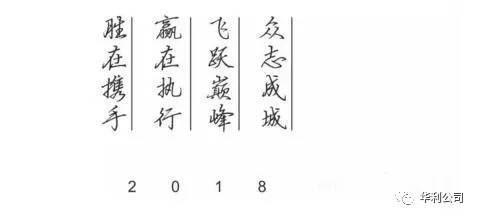 众志成城
飞跃巅峰
赢在执行
胜在携手
2018
华利公司